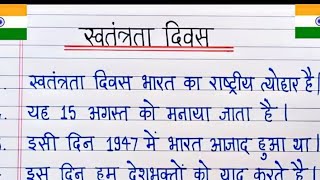 स्वतंत्रता दिवस
स्वतंत्रता दिवस भारत का राष्ट्रीय त्योहार है।
यह 15 अगस्त को मनाया जाता है।
इसी दिन 1947 में भारत आजाद हुआ था।
इस दिन हम देशभक्तों को याद करते है।